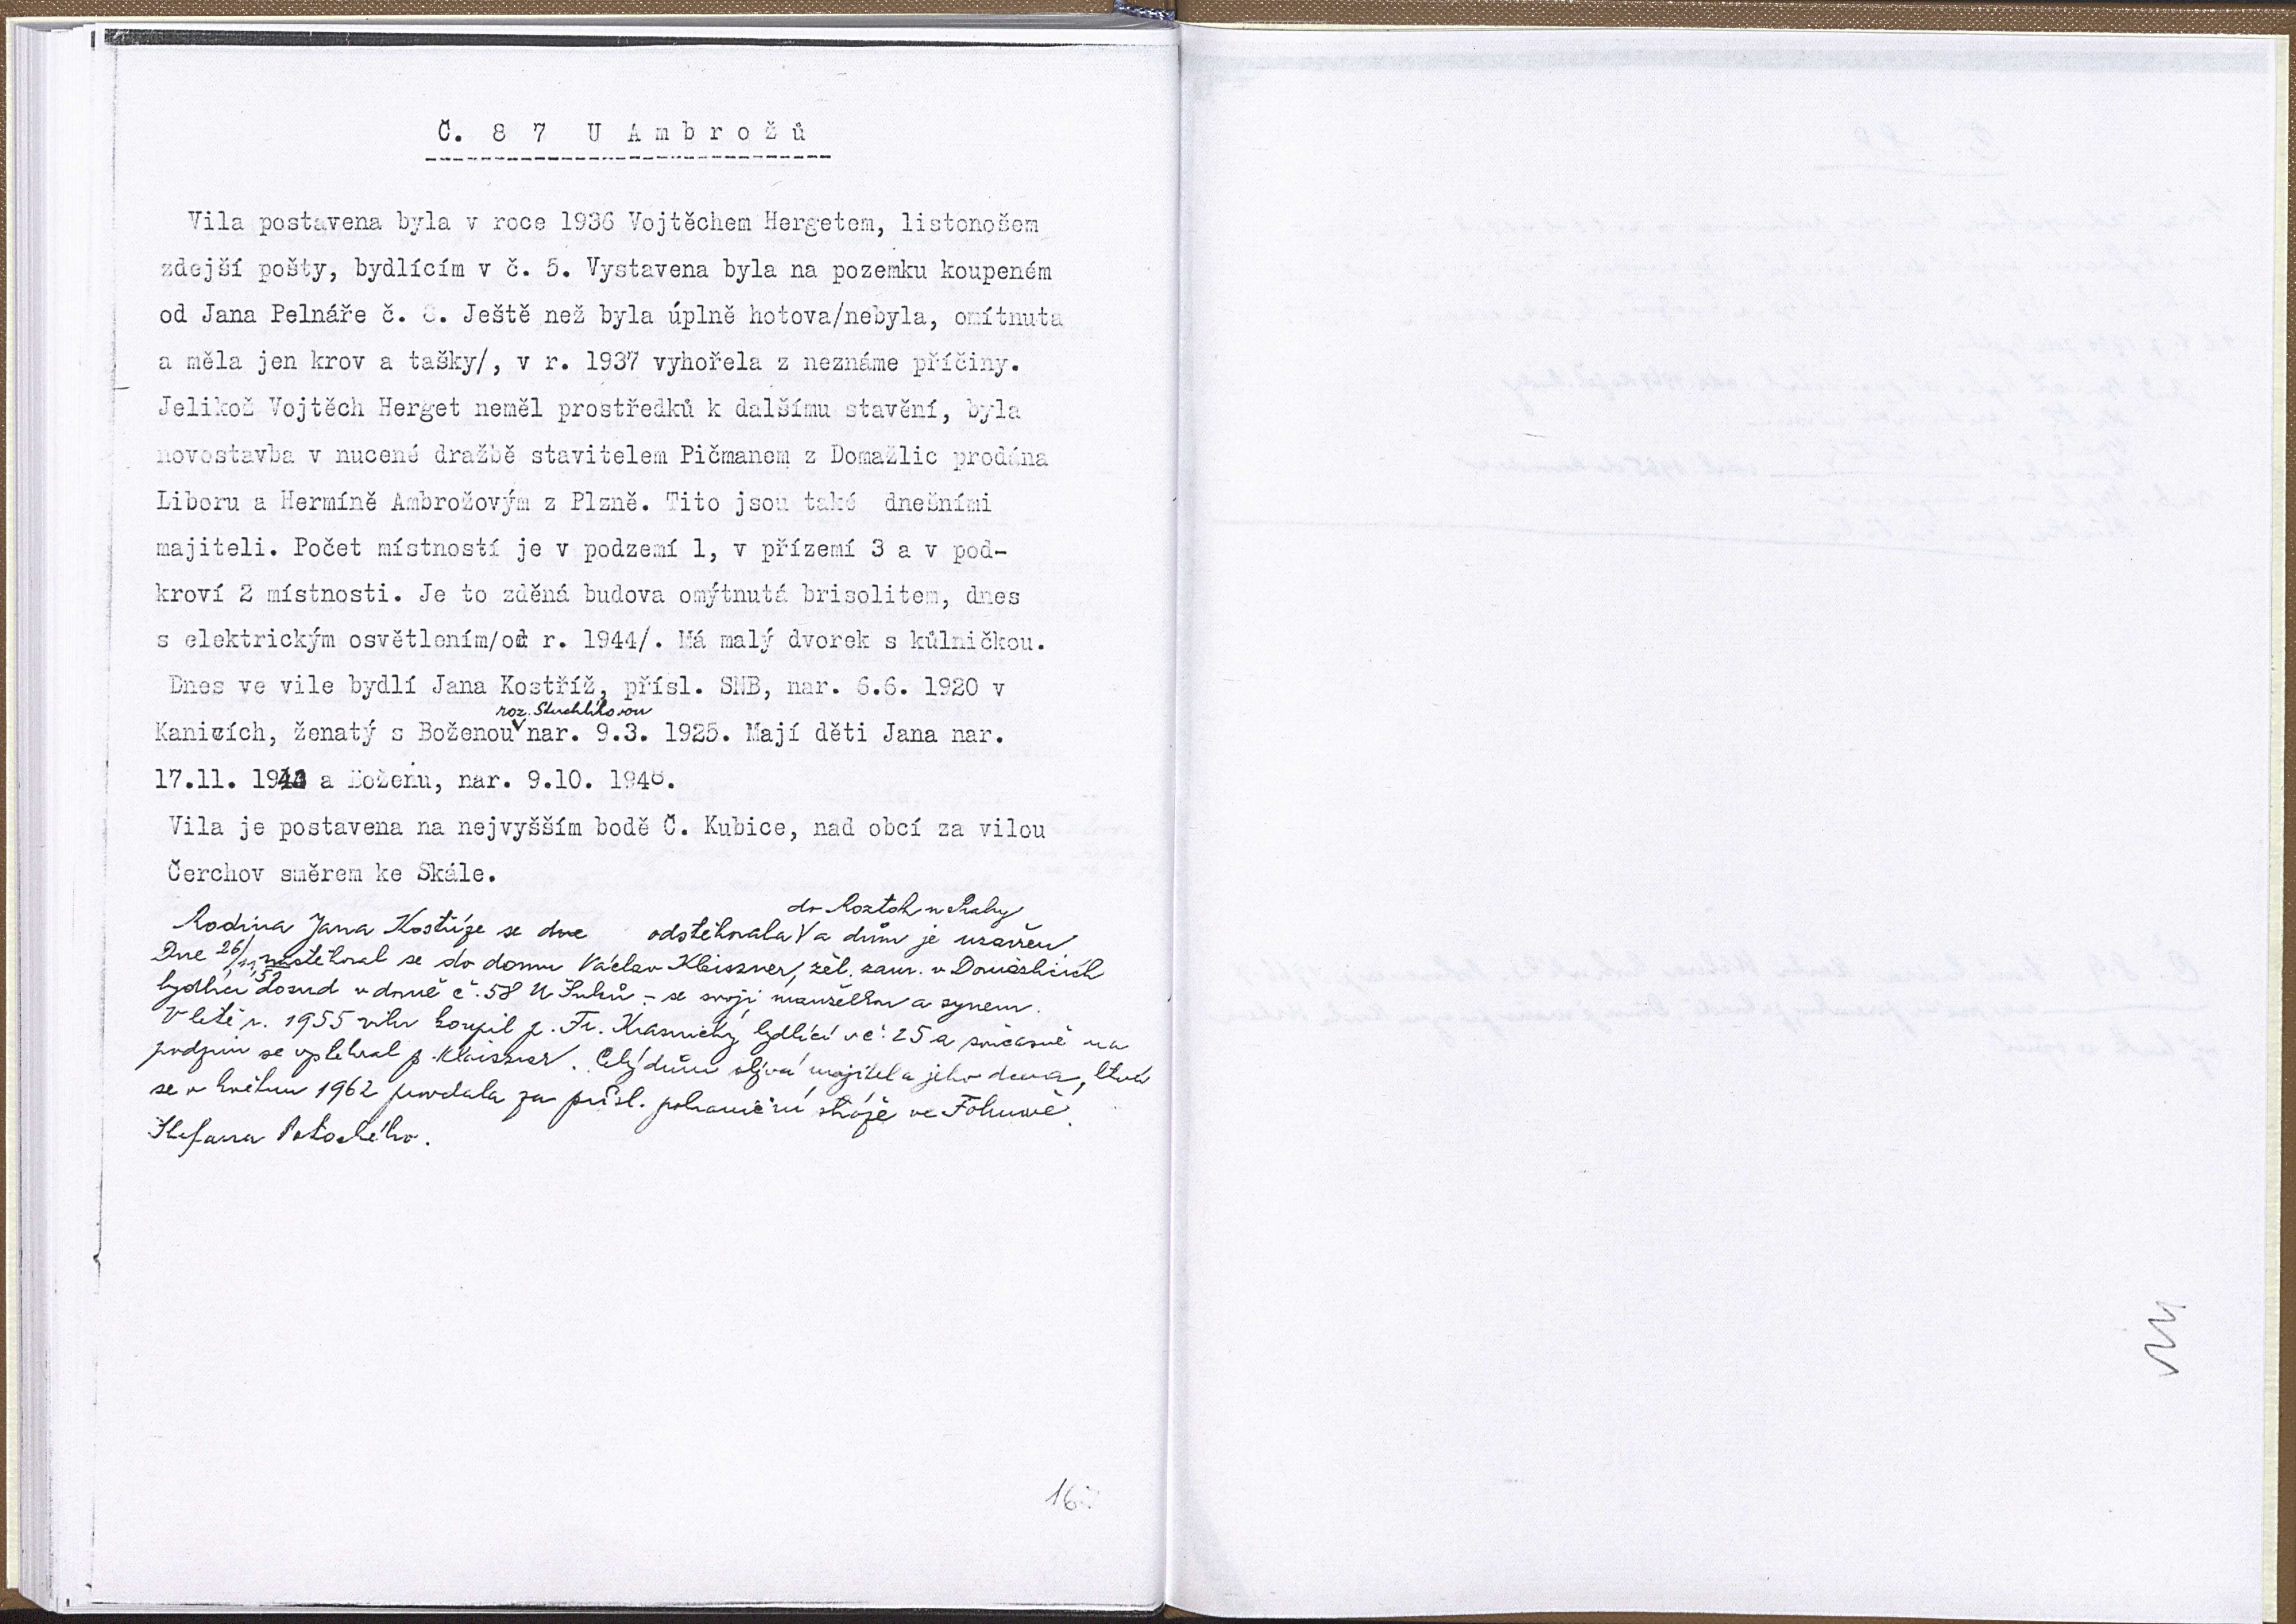 Č. 8 7 U A m b r o ž ů
Vila postavena byla v roce 1936 Vojtěchem Hergetem, listonošem
zdejší pošty, bydlícím v č. 5. Vystavena byla na pozemku koupeném
od Jana Pelnáře č. 8. Ještě než byla úplně hotova/nebyla, omítnuta
a měla jen krov a tašky/, v r. 1937 vyhořela z neznáme příčiny.
Jelikož Vojtěch Herget neměl prostředků k dalšímu stavění, byla
novostavba v nucené dražbě stavitelem Pičmanem z Domažlic prodána
Liboru a Hermíně Ambrožovým z Plzně. Tito jsou také dnešními
majiteli. Počet místností je v podzemí 1, v přízemí 3 a v pod-
kroví 2 místnosti. Je to zděná budova omýtnutá brisolitem, dnes
s elektrickým osvětlením/od r. 1944/. Má malý dvorek s kůlničkou.
Dnes ve vile bydlí Jana Kostříž, přísl. SNB, nar. 6.6. 1920 v
roz. Stuchlíkovou
Kanicích, ženatý s Boženou nar. 9.3. 1925. Mají děti Jana nar.
17.11. a Boženu, nar. 9.10. 1948.
Vila je postavena na nejvyšším bodě Č. Kubice, nad obcí za vilou
Čerchov směrem ke Skále.
do Roztok u Prahy
Rodina Jana Kostříže se dne odstěhovala a dům je uzavřen
Dne 26/11 52 nastěhoval se do domu Václav Kleiszner, žel. zam. v Domažlicích
bydlící dosud v domě č. 58 U - se svojí manželkou a synem.
V létě r. 1955 vilu koupil p. Fr. Krasnický, bydlící v č. 25 a současně na
podzim se vystěhoval p. Kleiszner. Celý dům obývá majitel a jeho dcera, která
se v květnu 1962 provdala za přísl. pohraniční stráže ve Folmavě
Štefana Potockého.